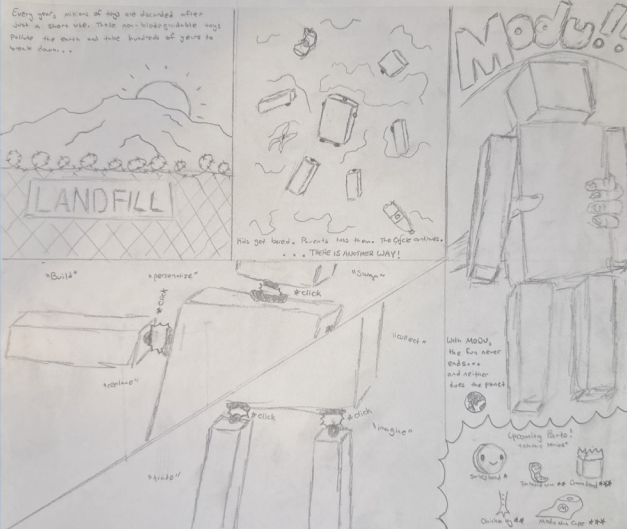 Every year, millions of toys are discarded after
just a short use. These non-biodegradable toys
Pollute the earth and take hundreds of years to
break down...
LANDFILL
Kids get bored. Parents toss them. The Cycle continues.
... THERE IS ANOTHER WAY!
Modu!!
"Build"
"personalize"
"Swap"
*click
*click
"collect"
"replace"
*click
*click
"imagine"
"trade"
With MODU,
the fun never
ends...
and neither
does the planet
Upcoming Parts!
series"